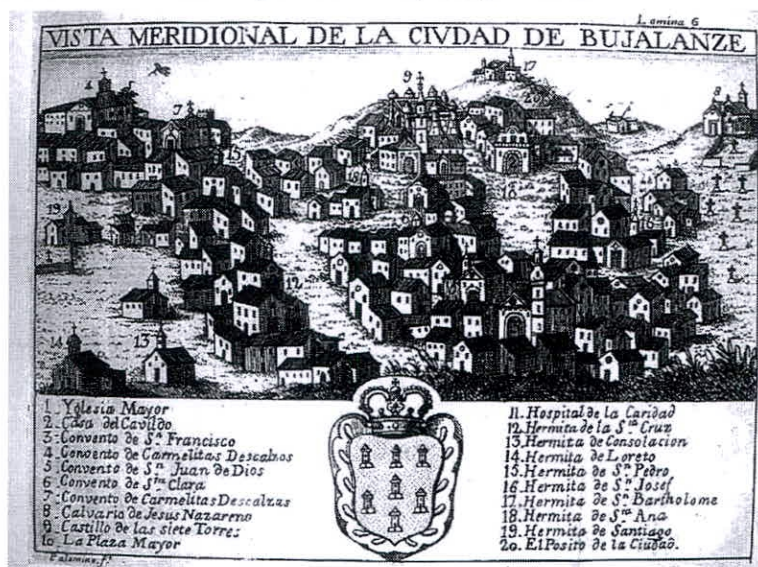 Lamina 6
VISTA MERIDIONAL DE LA CIVDAD DE BUJALANZE
4
17
9
8
7
20
15
18
19
16
12
14
13
1. Yglesia Mayor
2. Casa del Cavildo
3. Convento de Sⁿ. Francisco
4. Convento de Carmelitas Descalzos
5. Convento de Sⁿ. Juan de Dios
6. Convento de Sᵗᵃ. Clara
7. Convento de Carmelitas Descalzas
8. Calvario de Jesus Nazareno
9. Castillo de las siete Torres
10. La Plaza Mayor
11. Hospital de la Caridad
12. Hermita de la Sᵗᵃ Cruz
13. Hermita de Consolacion
14. Hermita de Loreto
15. Hermita de Sⁿ. Pedro
16. Hermita de Sⁿ. Josef
17. Hermita de Sⁿ. Bartholome
18. Hermita de Sᵗᵃ Ana
19. Hermita de Santiago
20. El Posito de la Ciudad.
Palomino fᵗ.